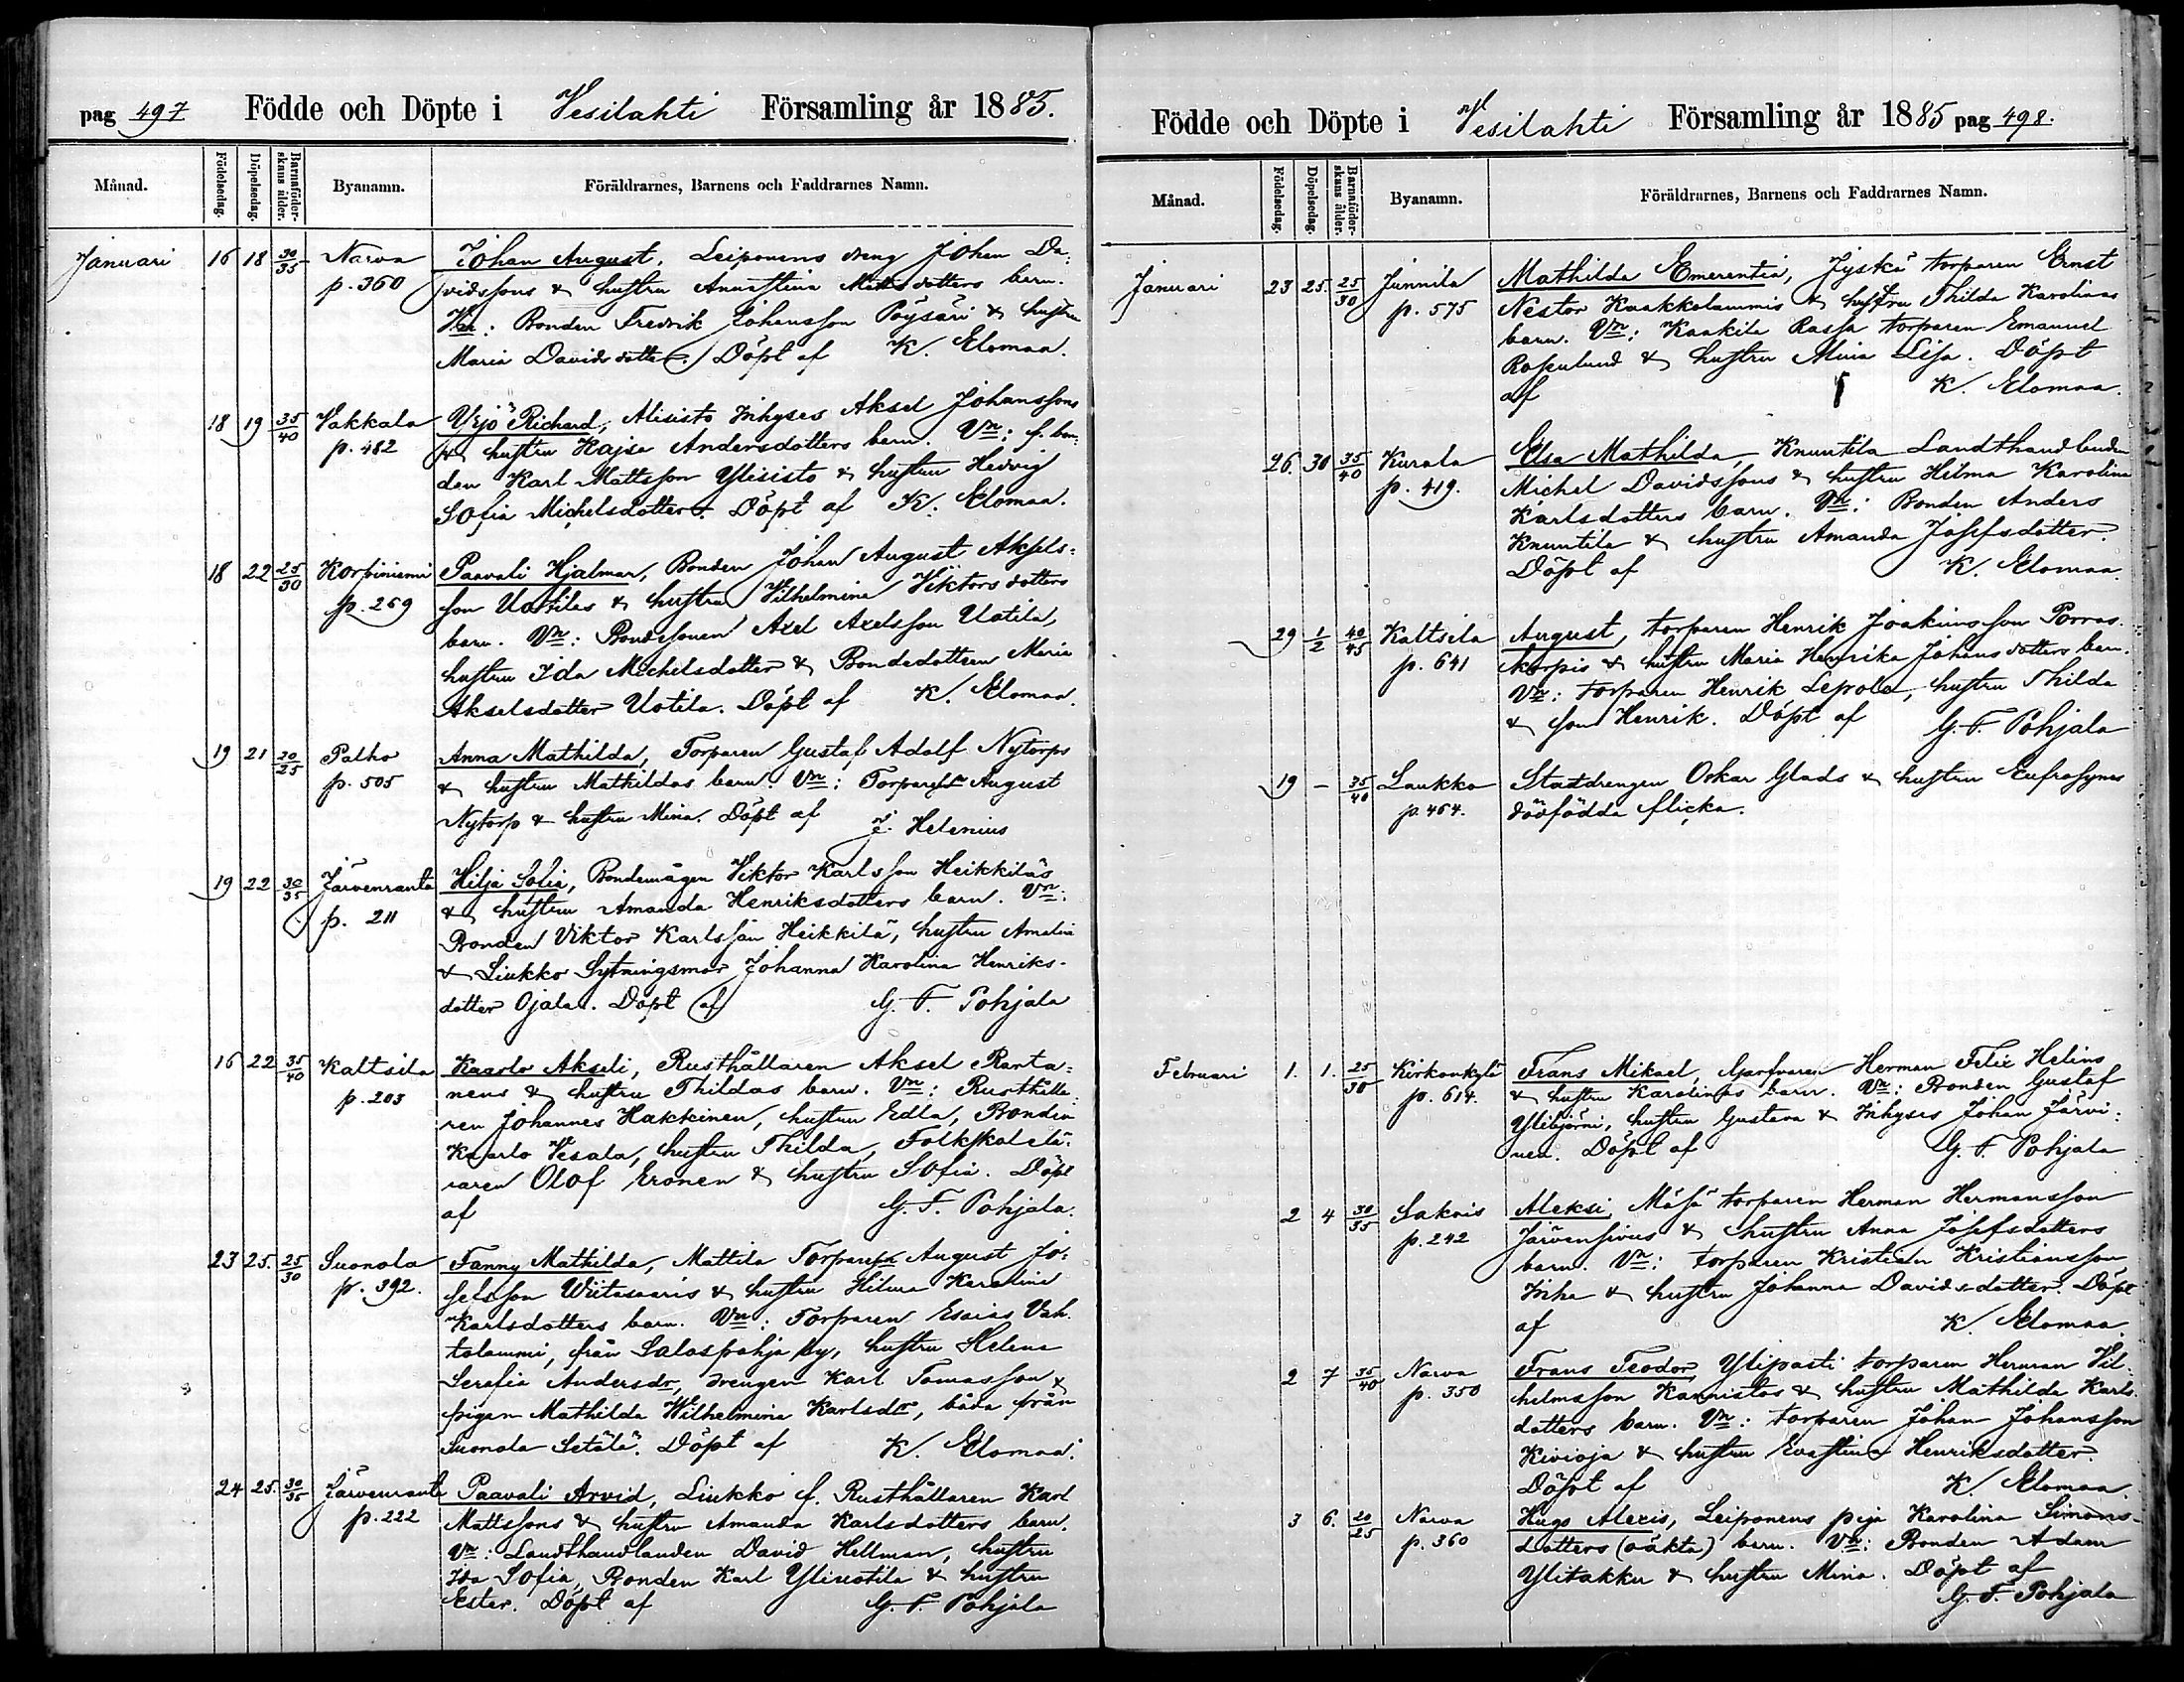 pag 497 Födde och Döpte i Vesilahti Församling år 1885.
Månad. Födelsedag. Döpelsedag. Barnaföderskans ålder. Byanamn. Föräldrarnes, Barnens och Faddrarnes Namn.
Januari 16 18 30/35 Narva Johan August, Leiponens dreng Johan Da-
p. 360 vidssons & hustru Annastina Mattsdotters barn.
Vn: Bonden Fredrik Johansson Pöysäri & hustru
Maria Davidsdotter. Döpt af K. Elomaa.
18 19 35/40 Vakkala Yrjö Richard, Alisisto Inhyses Aksel Johanssons
p. 482 & hustru Kajsa Andersdotters barn. Vn: f. bon-
den Karl Mattsson Ylisisto & hustru Hedvig
Sofia Michelsdotter. Döpt af K. Elomaa.
18 22 25/30 Korpiniemi Paavali Hjalmar, Bonden Johan August Aksels-
p. 259 son Uotilas & hustru Vilhelmina Viktorsdotters
barn. Vn: Bondesonen Axel Axelsson Uotila,
hustru Ida Michelsdotter & Bondedottren Maria
Akselsdotter Uotila. Döpt af K. Elomaa.
19 21 20/25 Palho Anna Mathilda, Torparen Gustaf Adolf Nytorps
p. 505 & hustru Mathildas barn. Vn: Torparen August
Nytorp & hustru Mina. Döpt af Helenius
19 22 30/35 Järvenranta Hilja Sofia, Bondemågen Viktor Karlsson Heikkiläs
p. 211 & hustru Amanda Henriksdotters barn. Vn:
Bonden Viktor Karlsson Heikkilä, hustru Amalia
& Liukko Sytningsmor Johanna Karolina Henriks-
dotter Ojala. Döpt af G. F. Pohjala
16 22 35/40 Kaltsila Kaarlo Akseli, Rusthållaren Aksel Ranta-
p. 203 nens & hustru Thildas barn. Vn: Rusthålla-
ren Johannes Hakkinen, hustru Edla, Bonden
Kaarlo Vesala, hustru Thilda, Folkskolelä-
raren Olof Eronen & hustru Sofia. Döpt
af G. F. Pohjala.
23 25. 25/30 Suonola Fanny Mathilda, Mattila Torparen August Jo-
p. 392. sefsson Wiitasaaris & hustru Hilma Karolina
Karlsdotters barn. Vn: Torparen Esaias Vah-
talammi, från Salospohja by, hustru Helena
Serafia Andersdr, drengen Karl Tomasson &
pigan Mathilda Wilhelmina Karlsdr, båda från
Suonola Setälä. Döpt af K. Elomaa.
24 25. 30/35 Järvenranta Paavali Arvid, Liukko f. Rusthållaren Karl
p. 222 Mattssons & hustru Amanda Karlsdotters barn.
Vn: Landthandlanden David Hellman, hustru
Ida Sofia, Bonden Karl Yliuotila & hustru
Ester. Döpt af G. F. Pohjala
Födde och Döpte i Vesilahti Församling år 1885 pag 498.
Månad. Födelsedag. Döpelsedag. Barnaföderskans ålder. Byanamn. Föräldrarnes, Barnens och Faddrarnes Namn.
Januari 23 25. 25/30 Junnila Mathilda Emerentia, Jyskä torparen Ernst
p. 575 Nestor Kaakkolammis & hustru Thilda Karolinas
barn. Vn: Kaakila Rassa torparen Emanuel
Rosenlund & hustru Miina Lisa. Döpt
af K. Elomaa.
26. 30 35/40 Kurala Elsa Mathilda, Knuutila Landthandlanden
p. 419. Michel Davidssons & hustru Hilma Karolina
Karlsdotters barn. Vn: Bonden Anders
Knuutila & hustru Amanda Josefsdotter.
Döpt af K. Elomaa.
29 1/2 40/45 Kaltsila August, torparen Henrik Joakimsson Porras-
p. 641 korpis & hustru Maria Henrika Johansdotters barn.
Vn: torparen Henrik Lepola, hustru Thilda
& son Henrik. Döpt af G. F. Pohjala
19 - 35/40 Laukko Statdrengen Oskar Glads & hustru Eufrosynes
p. 464. dödfödda flicka.
Februari 1. 1. 25/30 Kirkonkylä Frans Mikael, Garfvaren Herman Felix Helins
p. 614. & hustru Karolinas barn. Vn: Bonden Gustaf
Ylibjörni, hustru Gustava & Inhyses Johan Järvi-
nen. Döpt af G. F. Pohjala
2 4 30/35 Sakois Aleksi, Mäsä torparen Herman Hermansson
p. 242 Järvensivus & hustru Anna Josefsdotters
barn. Vn: torparen Kristian Kristiansson
Inha & hustru Johanna Davidsdotter. Döpt
af K. Elomaa.
2 7 35/40 Narva Frans Teodor, Ylipasti torparen Herman Vil-
p. 350 helmsson Kannistos & hustru Mathilda Karls-
dotters barn. Vn: torparen Johan Johansson
Kivioja & hustru Evastina Henriksdotter.
Döpt af K. Elomaa.
3 6. 20/25 Narva Hugo Alexis, Leiponens piga Karolina Simons-
p. 360 dotters (oäkta) barn. Vn: Bonden Adam
Ylitakku & hustru Mina. Döpt af
G. F. Pohjala